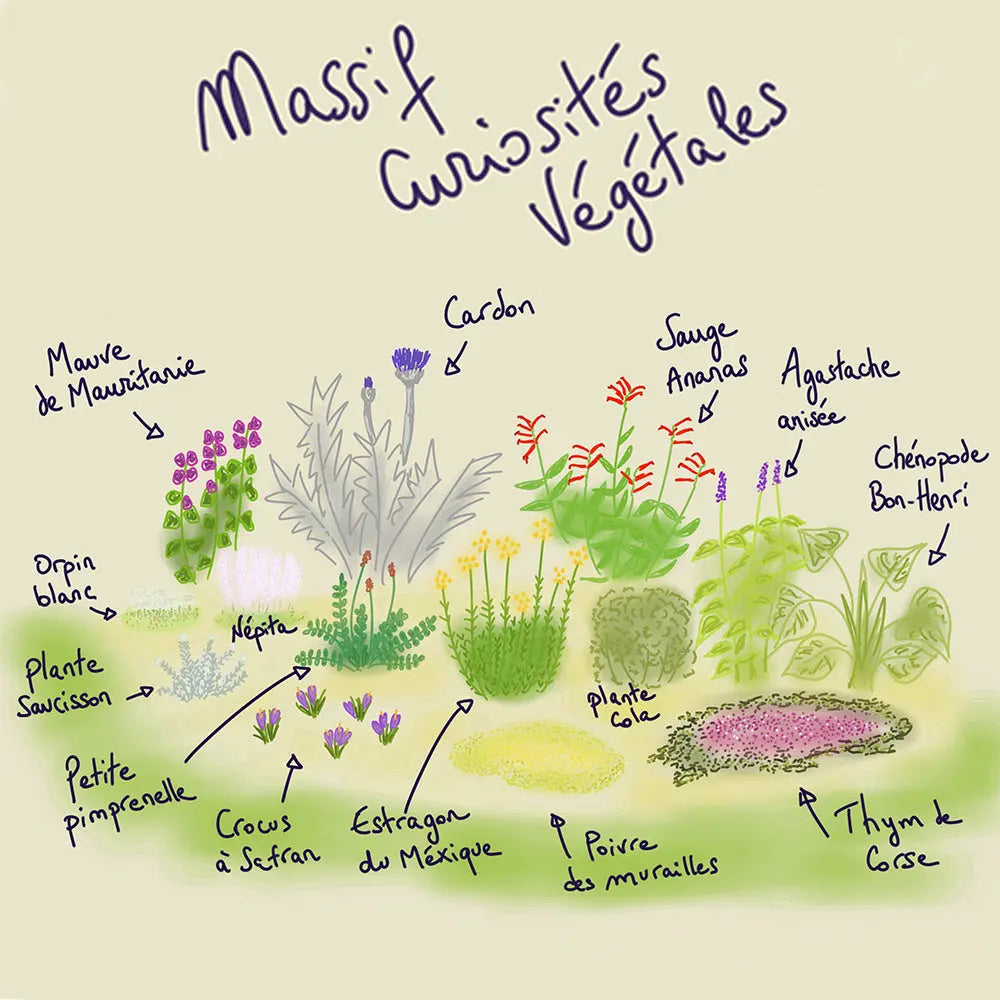 Massif
Curiosités
Végétales
Cardon
Mauve
de Mauritanie
Sauge
Ananas
Agastache
anisée
Chénopode
Bon-Henri
Orpin
blanc
Népita
Plante
Saucisson
plante
Cola
Petite
pimprenelle
Crocus
à Safran
Estragon
du Méxique
Poivre
des murailles
Thym de
Corse